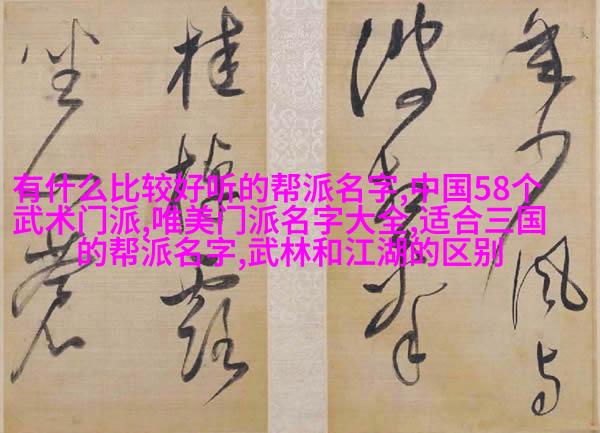 有什么比较好听的帮派名字,中国58个
武术门派,唯美门派名字大全,适合三国
的帮派名字,武林和江湖的区别
少风与
桂露